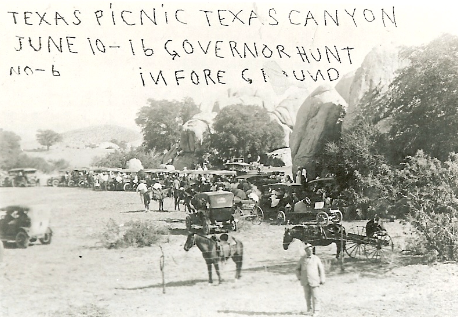 TEXAS PICNIC TEXAS CANYON
JUNE 10-16 GOVERNOR HUNT
NO-6 INFORE GROUND